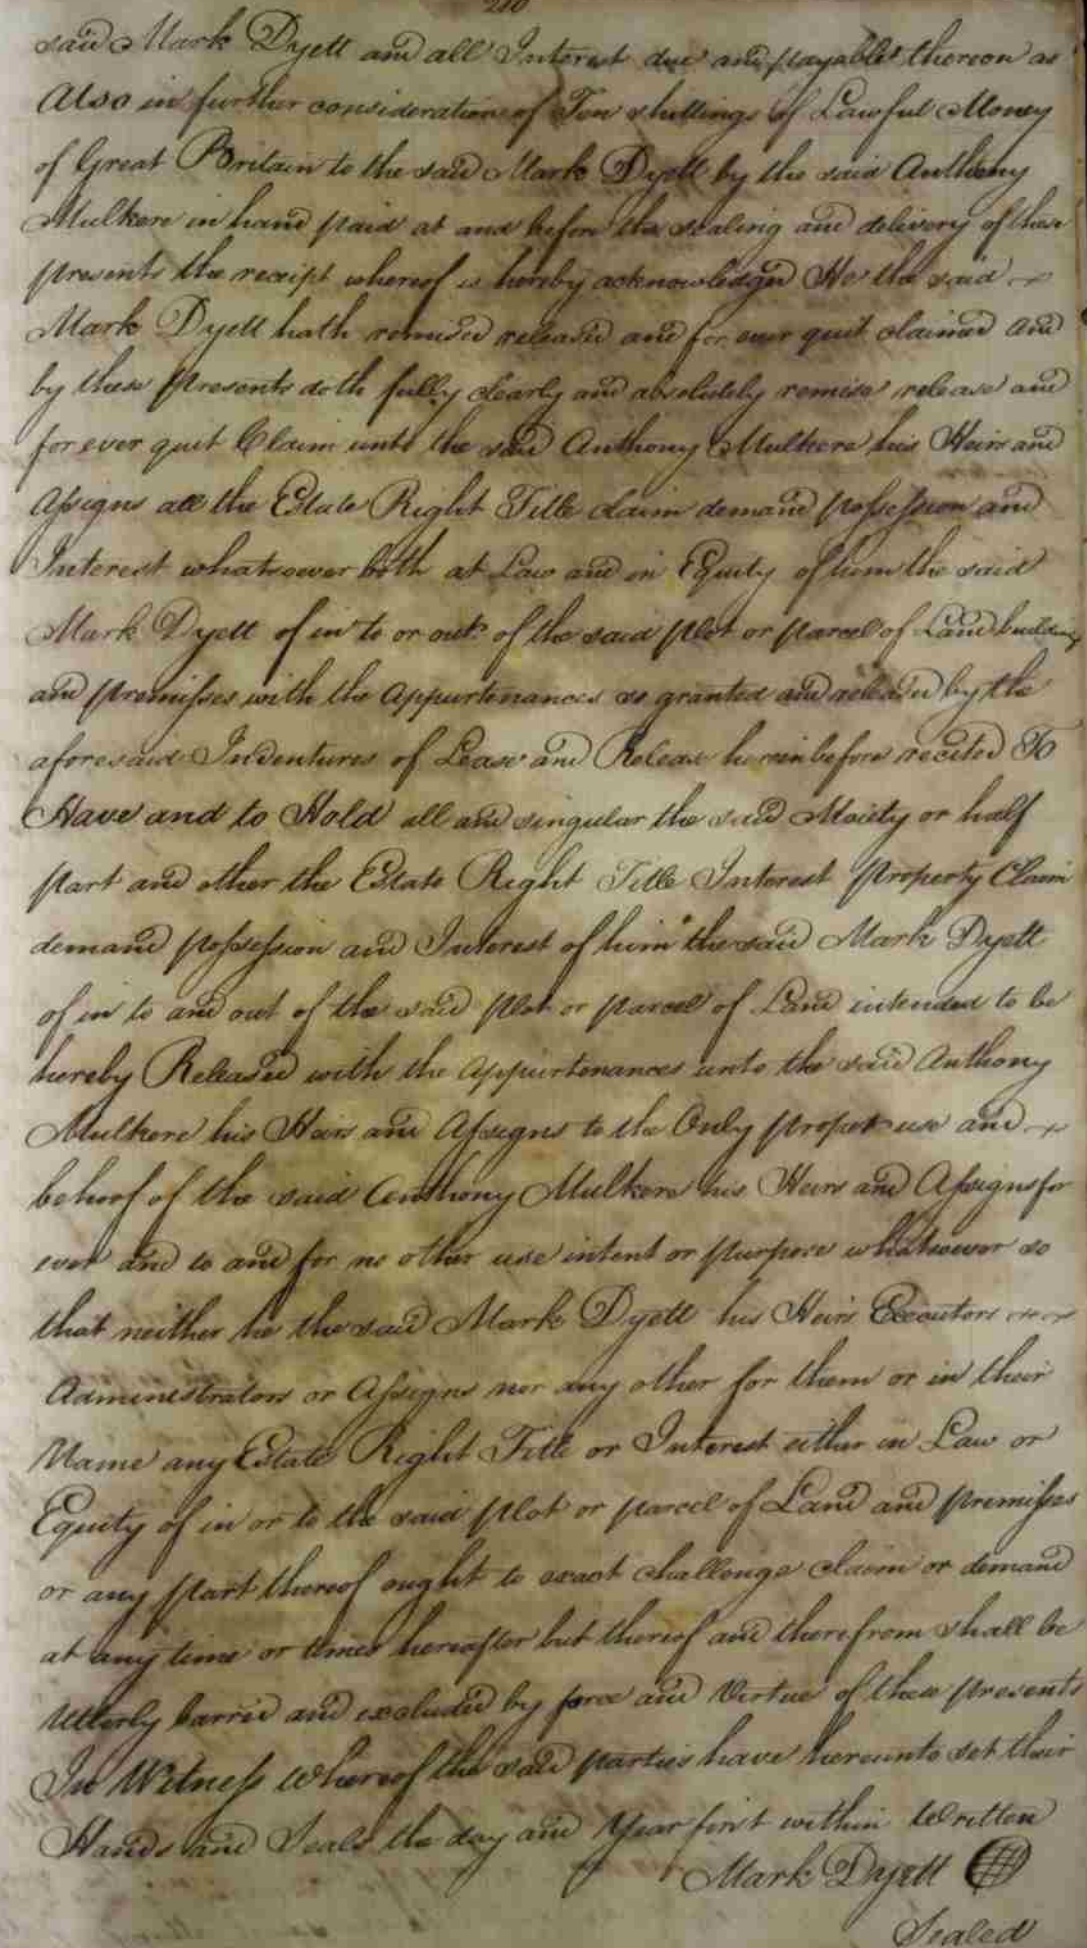 210
said Mark Dyett and all Interest due and payable thereon as
Also in further consideration of Ten shillings of Lawful Money
of Great Britain to the said Mark Dyett by the said Anthony
Mulkere in hand paid at and before the sealing and delivery of these
presents the receipt whereof is hereby acknowledged He the said
Mark Dyett hath remised released and for ever quit claimed and
by these presents doth fully clearly and absolutely remise release and
for ever quit Claim unto the said Anthony Mulkere his Heirs and
Assigns all the Estate Right Title claim demand possession and
Interest whatsoever both at Law and in Equity of him the said
Mark Dyett of in to or out of the said plot or parcel of Land buildings
and premisses with the appurtenances so granted and released by the
aforesaid Indentures of Lease and Release herein before recited To
Have and to Hold all and singular the said Moiety or half
part and other the Estate Right Title Interest property Claim
demand possession and Interest of him the said Mark Dyett
of in to and out of the said plot or parcel of Land intended to be
hereby Released with the appurtenances unto the said Anthony
Mulkere his Heirs and Assigns to the Only proper use and
behoof of the said Anthony Mulkere his Heirs and Assigns for
ever and to and for no other use intent or purpose whatsoever so
that neither he the said Mark Dyett his Heirs Executors
Administrators or Assigns nor any other for them or in their
Name any Estate Right Title or Interest either in Law or
Equity of in or to the said plot or parcel of Land and premisses
or any part thereof ought to exact challenge claim or demand
at any time or times hereafter but thereof and therefrom shall be
Utterly barred and excluded by force and Virtue of these presents
In Witness whereof the said parties have hereunto set their
Hands and Seals the day and Year first within Written
Mark Dyett
Sealed